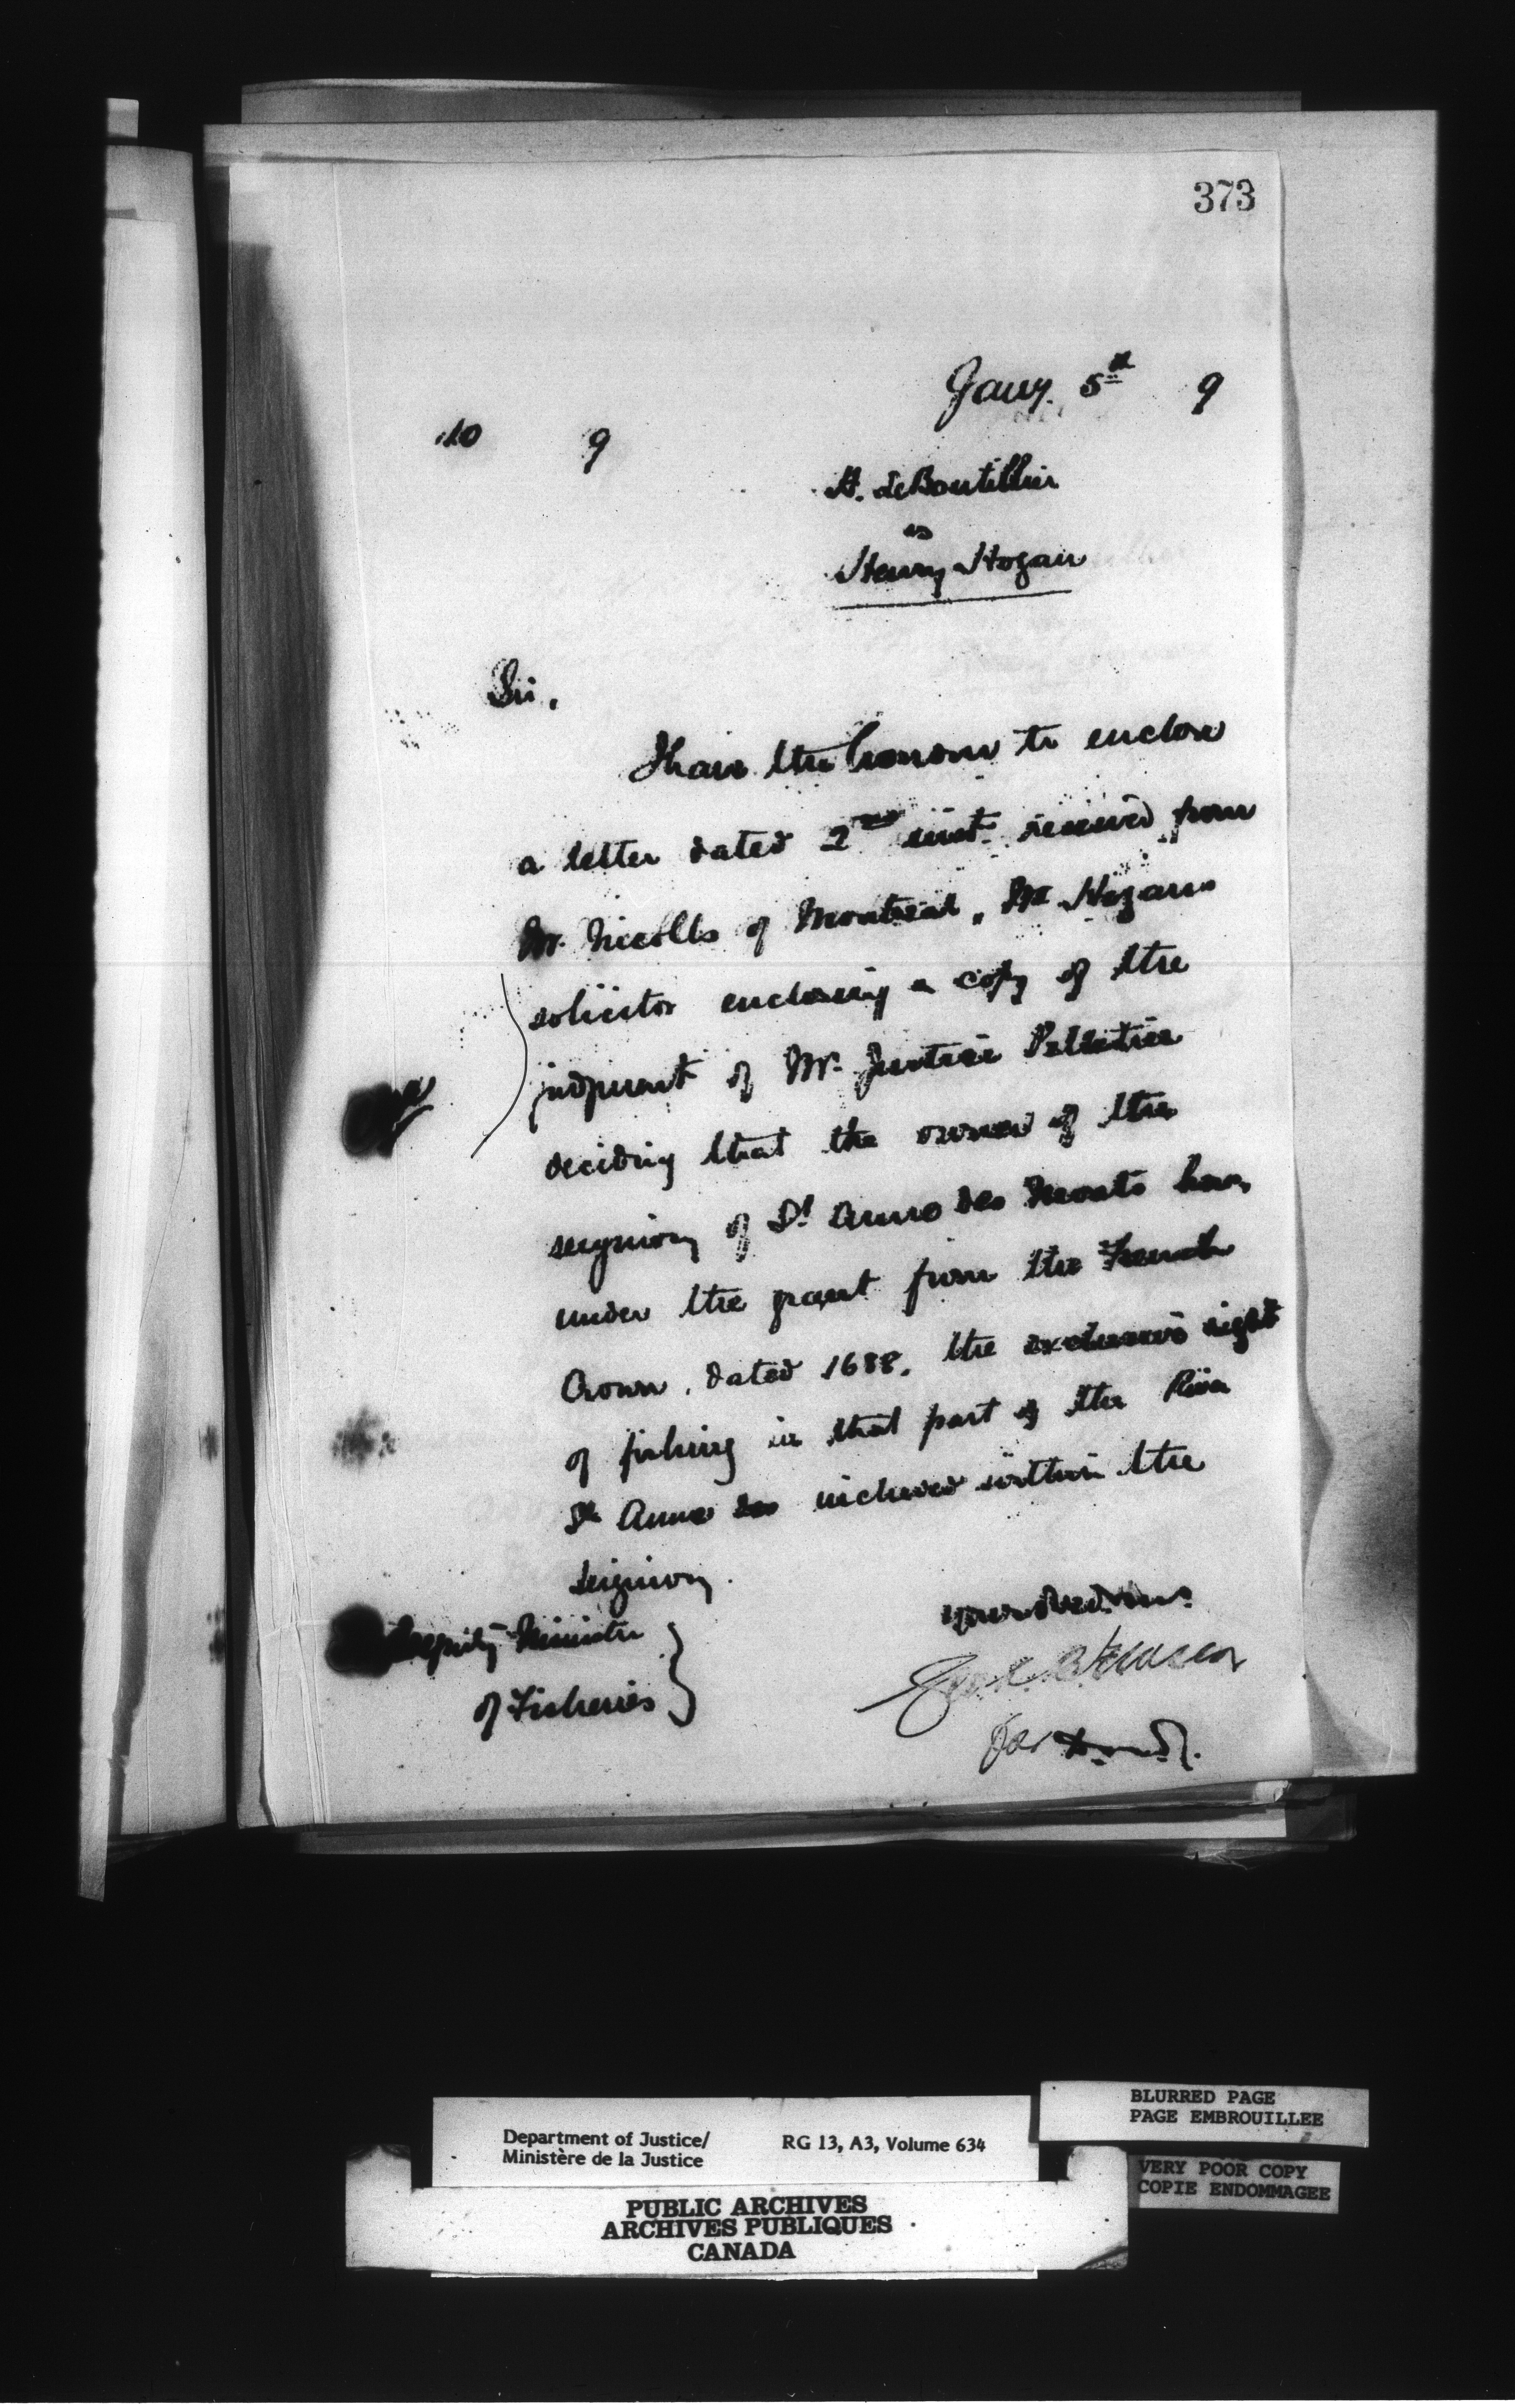 373
Jany. 5th 9
10 9
H. LeBoutillier
vs
Henry Hogan
Sir,
I have the honour to enclose
a letter dated 2nd inst. received from
Mr. Nicolls of Montreal, Mr. Hogan's
solicitor enclosing a copy of the
judgment of Mr. Justice Pelletier
deciding that the owner of the
seigniory of St Anne des Monts has,
under the grant from the French
Crown, dated 1688, the exclusive right
of fishing in that part of the River
St Anne des included within the
seigniory.
Your obed. serv.
Deputy Minister
of Fisheries
for D.M.J.
BLURRED PAGE
PAGE EMBROUILLEE
Department of Justice/ RG 13, A3, Volume 634
Ministère de la Justice
VERY POOR COPY
COPIE ENDOMMAGEE
PUBLIC ARCHIVES
ARCHIVES PUBLIQUES
CANADA